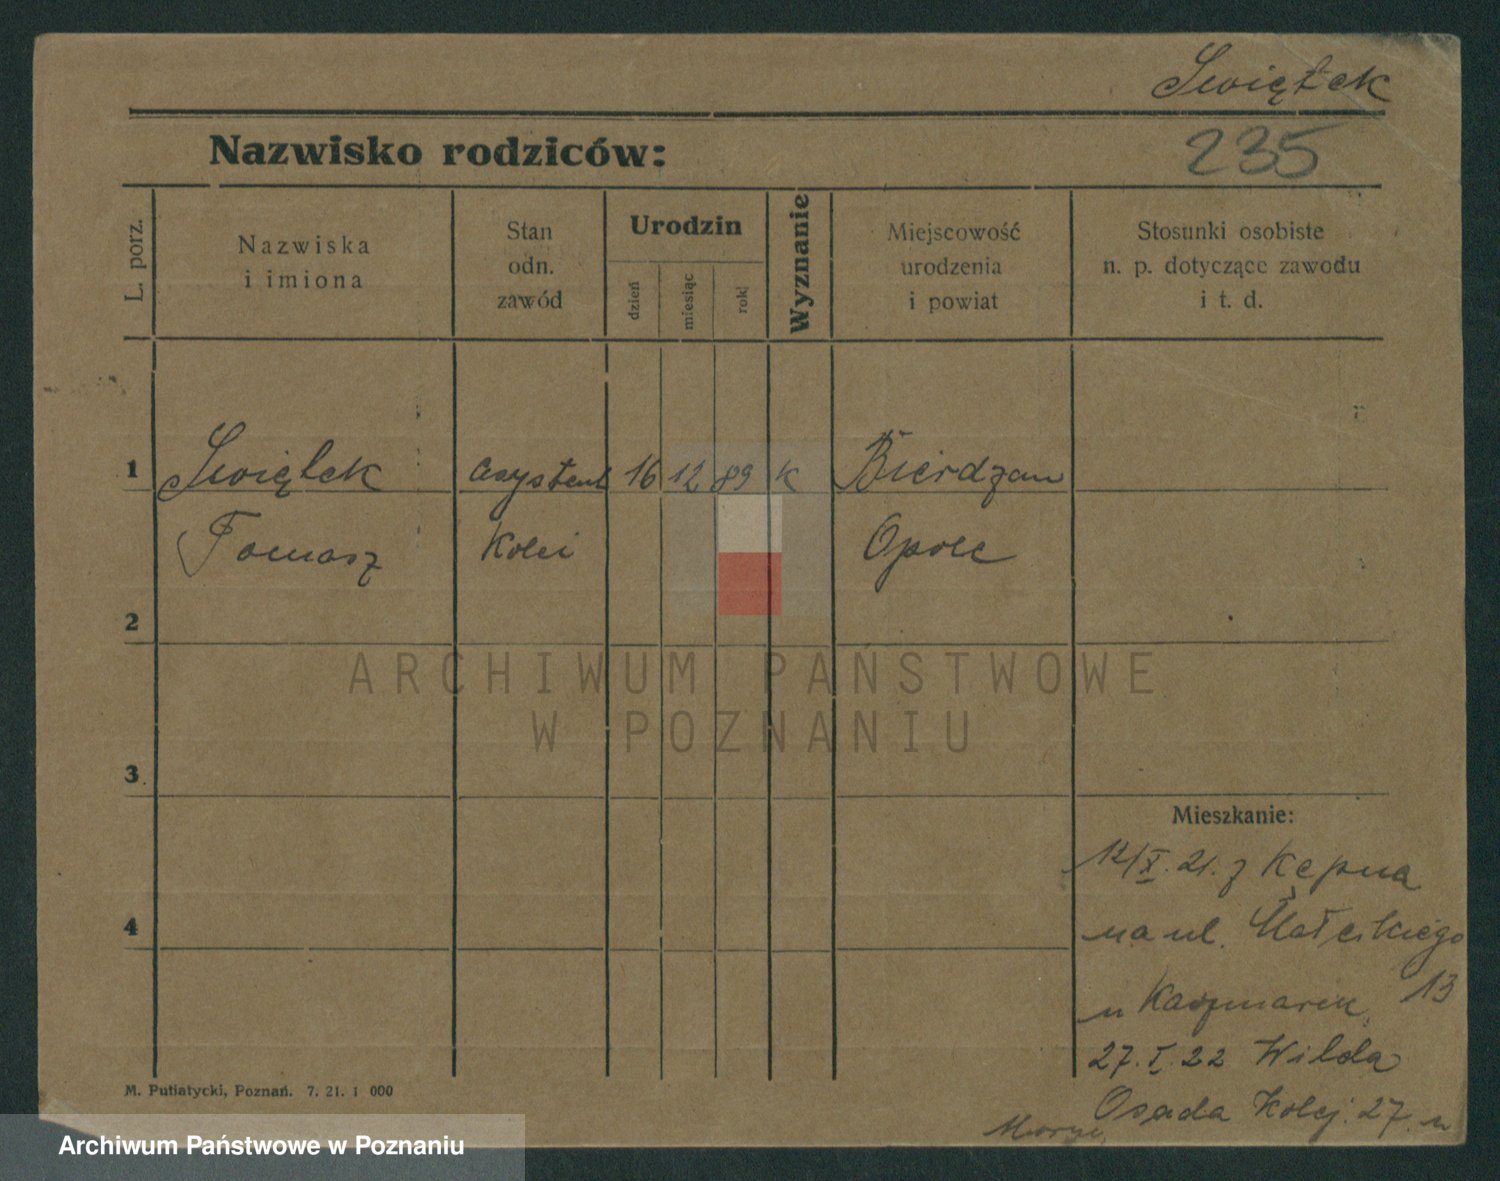 Świętek
235
Nazwisko rodziców:
L. porz.
Nazwiska
i imiona
Stan
odn.
zawód
Urodzin
dzień
miesiąc
rok
Wyznanie
Miejscowość
urodzenia
i powiat
Stosunki osobiste
n. p. dotyczące zawodu
i t. d.
1
Świętek
asystent
16
12
89
K
Bierdzan
Tomasz
Kolei
Opole
2
ARCHIWUM PAŃSTWOWE
W POZNANIU
3
Mieszkanie:
12/X. 21. z Kępna
4
na ul. Małeckiego
13
u Kaczmarek
27. I. 22 Wilda
Osada Kolej. 27. u
M. Putiatycki, Poznań. 7. 21. 1 000
Archiwum Państwowe w Poznaniu